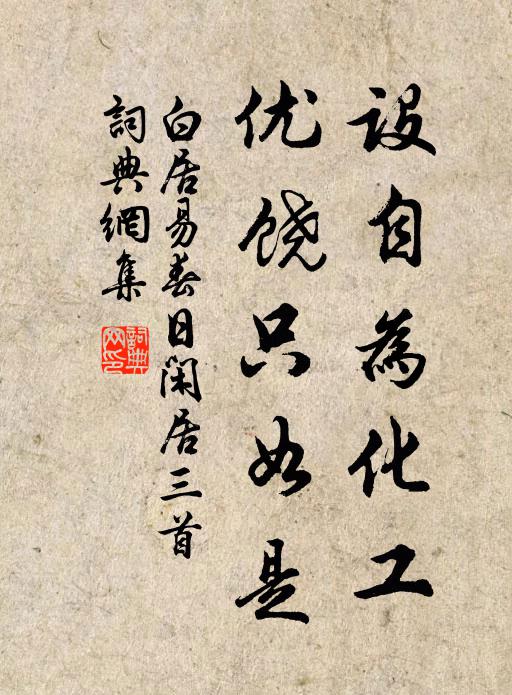 設自為化工
优饶只如是
白居易春日閑居三首
詞典網集
詞典网印